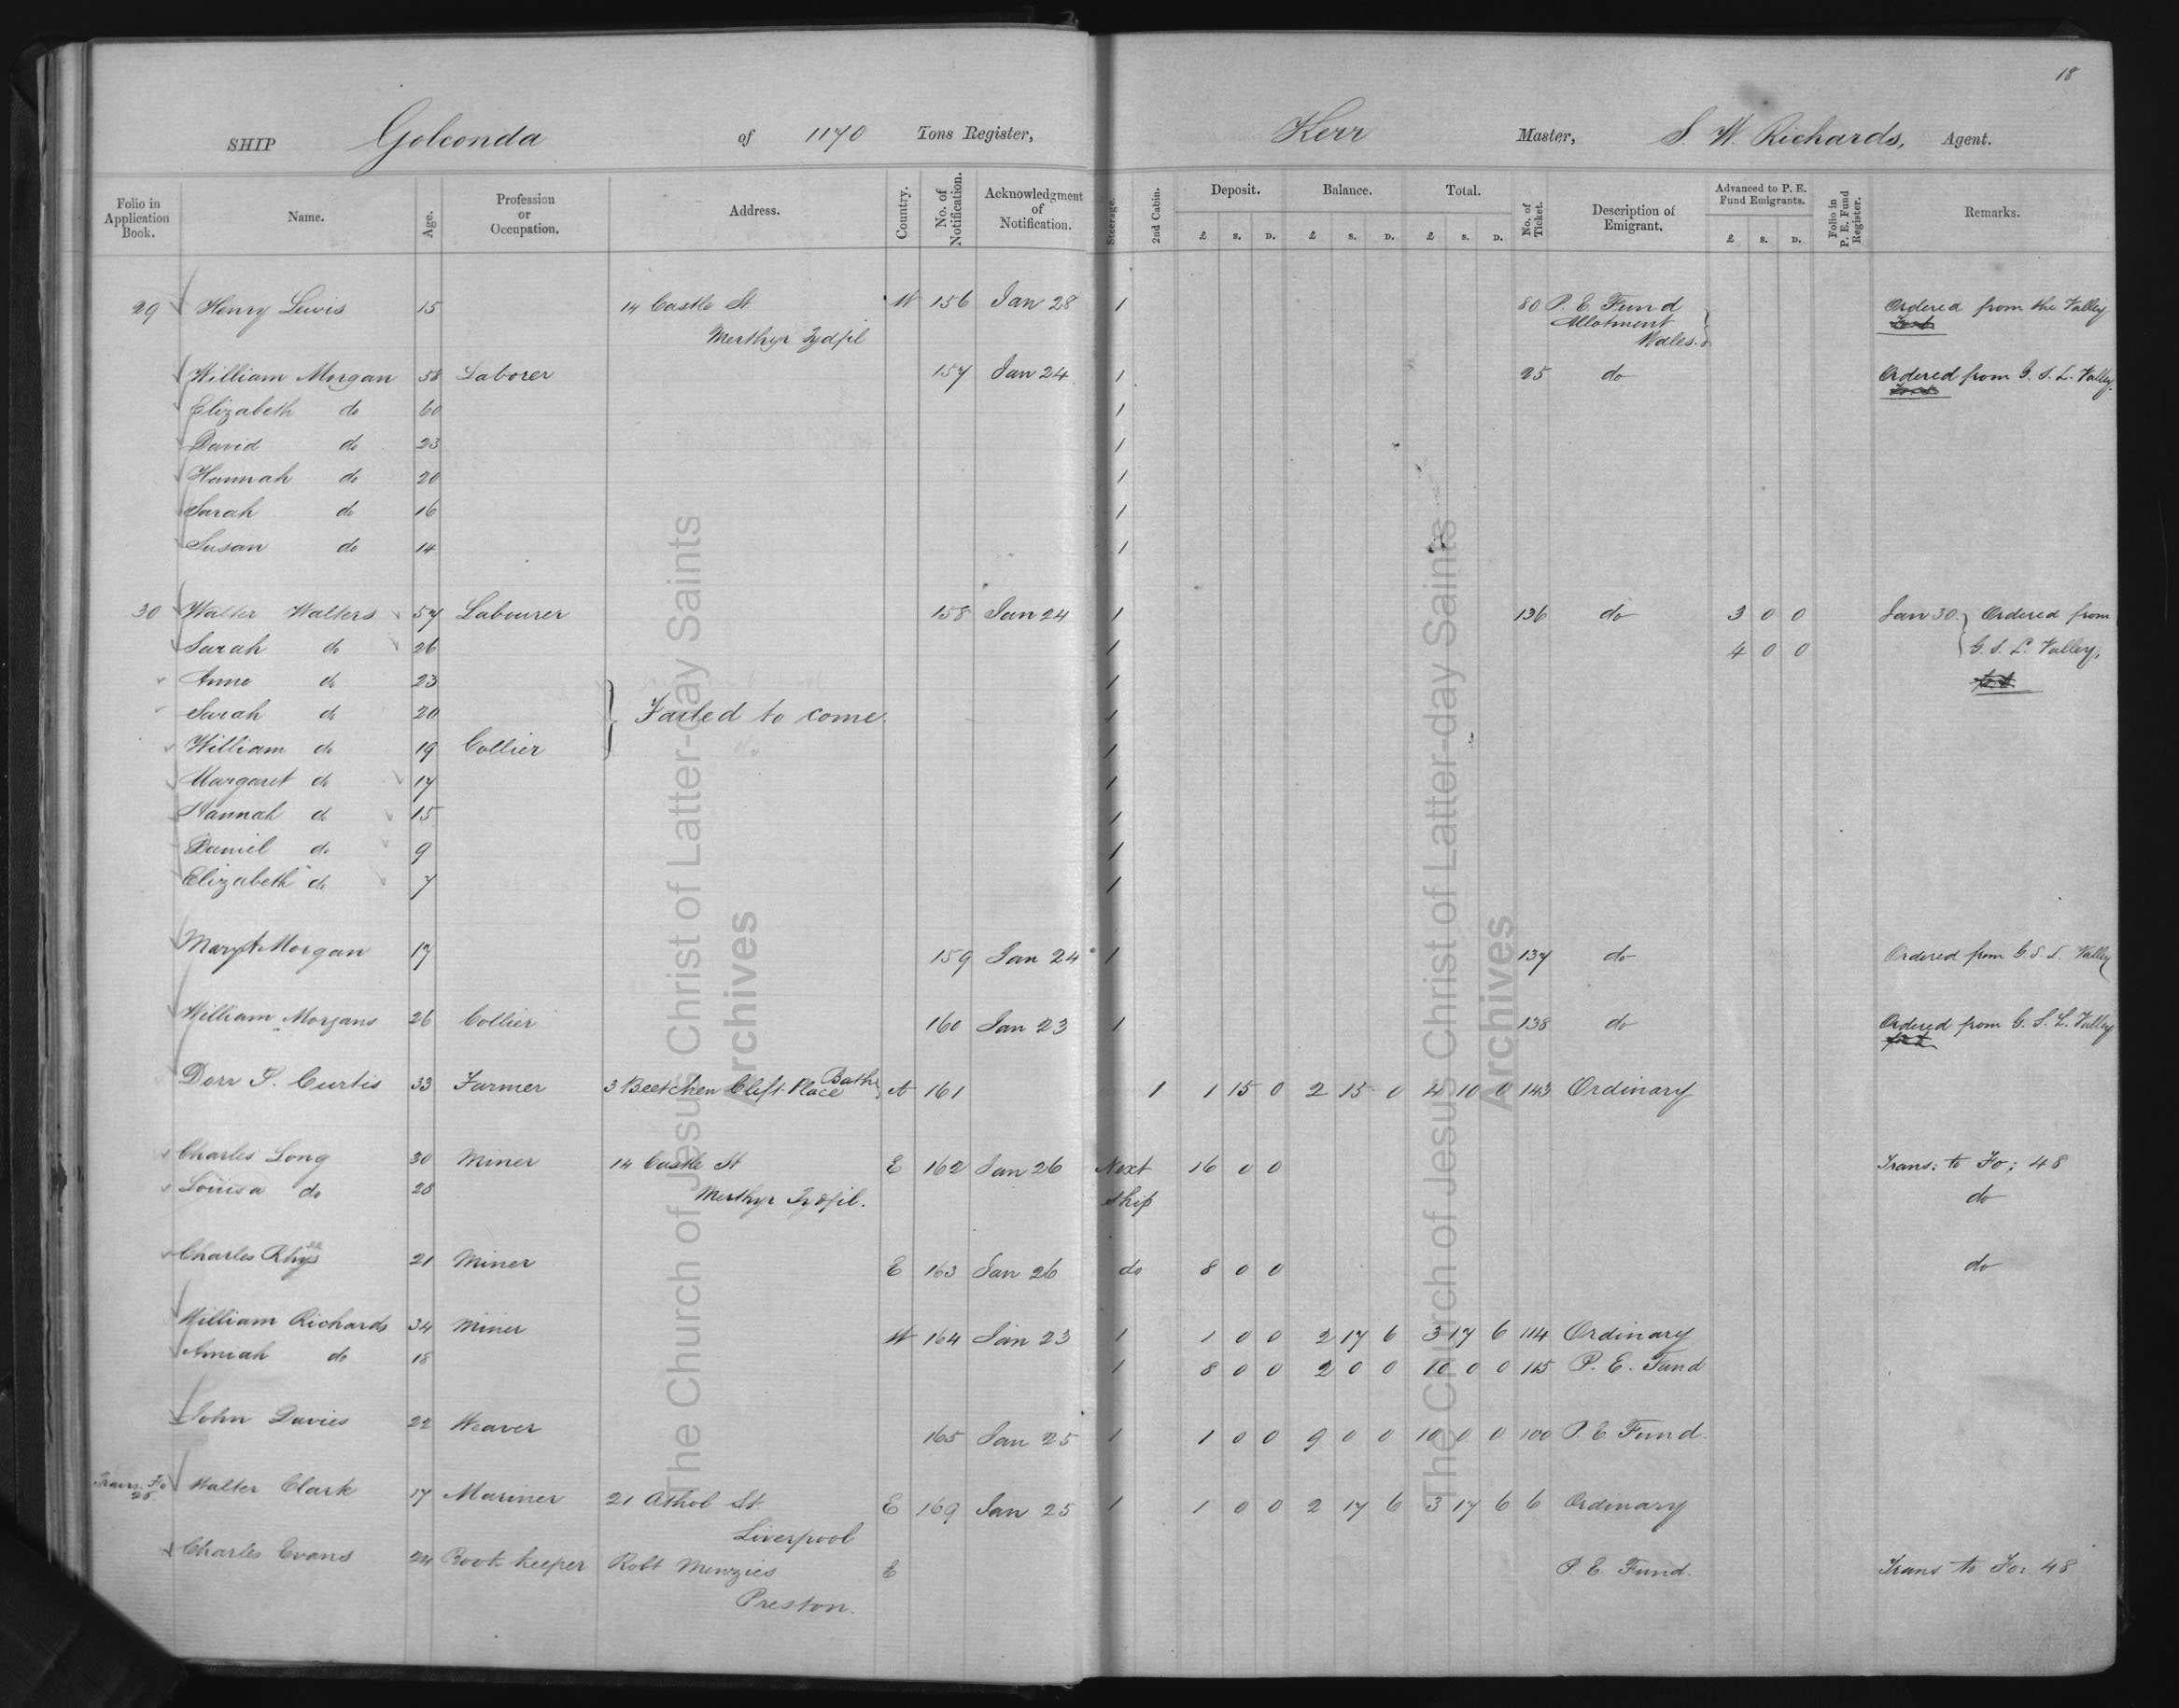 18
SHIP Golconda of 1170 Tons Register, Kerr Master, S. W. Richards, Agent.
Folio in Application Book. Name. Age. Profession or Occupation. Address. Country. No. of Notification. Acknowledgment of Notification. Steerage. 2nd Cabin. Deposit. Balance. Total. No. of Ticket. Description of Emigrant. Advanced to P. E. Fund Emigrants. Folio in P. E. Fund Register. Remarks.
£ S. D. £ S. D. £ S. D. £ S. D.
29 Henry Lewis 15 14 Castle St W 156 Jan 28 1 80 P. E. Fund Ordered from the Valley
Merthyr Tydfil Allotment
Wales.
William Morgan 58 Laborer 157 Jan 24 1 25 do Ordered from G. S. L. Valley.
Elizabeth do 60 1
David do 23 1
Hannah do 20 1
Sarah do 16 1
Susan do 14 1
30 Walter Walters 57 Labourer 158 Jan 24 1 136 do 3 0 0 Jan 30. Ordered from
Sarah do 26 1 4 0 0 G. S. L. Valley.
Anne do 23 1
Sarah do 20 Failed to come. 1
William do 19 Collier 1
Margaret do 17 1
Hannah do 15 1
Daniel do 9 1
Elizabeth do 7 1
Mary A Morgan 17 159 Jan 24 1 137 do Ordered from G. S. L. Valley
William Morgans 26 Collier 160 Jan 23 1 138 do Ordered from G. S. L. Valley
Dorr P. Curtis 33 Farmer 3 Beetchen Clift Place Bath A 161 1 1 15 0 2 15 0 4 10 0 143 Ordinary
Charles Long 30 Miner 14 Castle St E 162 Jan 26 Next 16 0 0 Trans: to Fo: 48
Louisa do 28 Merthyr Tydfil. Ship do
Charles Rhys 21 Miner E 163 Jan 26 do 8 0 0 do
William Richards 34 Miner W 164 Jan 23 1 1 0 0 2 17 6 3 17 6 114 Ordinary
Amiah do 18 1 8 0 0 2 0 0 10 0 0 115 P. E. Fund
John Davies 22 Weaver 165 Jan 25 1 1 0 0 9 0 0 10 0 0 100 P. E. Fund.
Trans. Fo Walter Clark 17 Mariner 21 Athol St E 169 Jan 25 1 1 0 0 2 17 6 3 17 6 6 Ordinary
Liverpool
Charles Evans 24 Book keeper Robt Menzies E P. E. Fund. Trans to Fo: 48
Preston.
The Church of Jesus Christ of Latter-day Saints
Archives
The Church of Jesus Christ of Latter-day Saints
Archives